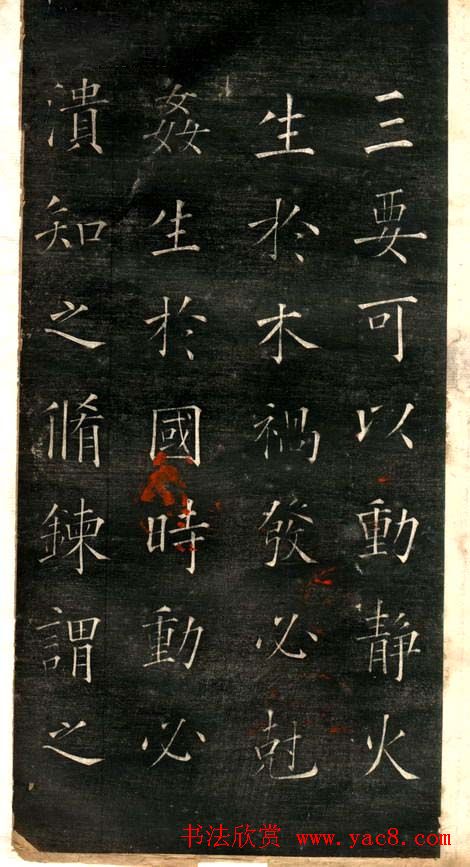 三要可以動静火
生於木禍發必尅
姦生於國時動必
潰知之脩鍊謂之
书法欣赏 www.yac8.com